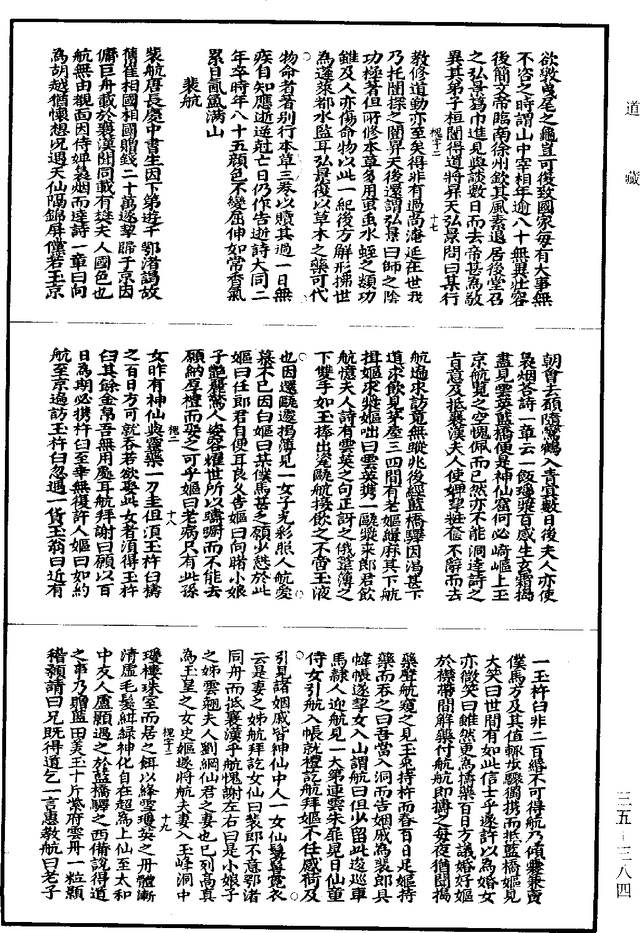 道藏
欲效曳尾之龜豈可復致國家每有大事無
不咨之時謂山中宰相年逾八十無異壯容
後簡文帝臨南徐州欽其風素退居後堂召
之弘景葛巾進見與談數日而去帝甚為敬
異其弟子桓闓得道將昇天弘景問曰某行
教修道勤亦至矣得非有過尚淹延在世我
乃托闓探之闓昇天後還謂弘景曰師之陰
功極著但所修本草多用䖟虫水蛭之類功
雖及人亦傷命物以此一紀後方解形拂世
為蓬萊都水監耳弘景復以草木之藥可代
物命者著別行本草三卷以贖其過一日無
疾自知應逝逆尅亡日仍作告逝詩大同二
年卒時年八十五顔色不變屈伸如常香氣
累日氤氳滿山
裴航
裴航唐長慶中書生因下第遊于鄂渚謁故
舊崔相國相國贈錢二十萬遂挈歸于京因
傭巨舟載於襄漢間同載有樊夫人國色也
航無由覿面因侍婢裊烟而達詩一章曰向
為胡越猶懷想况遇天仙隔錦屏儻若玉京
朝會去願隨鸞鶴入青冥數日後夫人亦使
裊烟答詩一章云一飲瓊漿百感生玄霜搗
盡見雲英藍橋便是神仙窟何必崎嶇上玉
京航覽之空愧佩而已然亦不能洞達詩之
旨意及抵襄漢夫人使婢挈粧奩不辭而去
航遍求訪竟無蹤兆後經藍橋驛因渴甚下
道求飲見茅屋三四間有老嫗緝麻其下航
揖嫗求漿嫗咄曰雲英携一甌漿來郎君飲
航憶夫人詩有雲英之句正訝之俄葦簿之
下雙手如玉捧出瓷甌航接飲之不啻玉液
也因還甌遽揭薄見一女子光彩照人航愛
慕不已因白嫗曰某僕馬甚乏願少憩於此
嫗曰任郎君自便耳良久告嫗曰向睹小娘
子艷麗驚人姿容耀世所以躊躇而不能去
願納厚禮而娶之可乎嫗曰老病只有此孫
女昨有神仙與靈藥一刀圭但湏玉杵臼擣
之百日方可就吞若欲娶此女者湏得玉杵
臼其餘金帛吾無用處耳航拜謝曰願以百
日為期必携杵臼至幸無復許人嫗曰如約
航至京遍訪玉杵臼忽遇一貨玉翁曰近有
一玉杵臼非二百緡不可得航乃傾囊兼賣
僕馬方及其值輒步驟獨携而抵藍橋嫗見
大笑曰世間有如此信士乎遂許以為婚女
亦微笑曰雖然更為擣藥百日方議婚好嫗
於襟帶間解藥付航航即擣之每夜猶聞搗
藥聲航窺之見玉兔持杵而舂百日足嫗持
藥而吞之曰吾當入洞而告姻戚為裴郎具
幃帳遂挈女入山謂航曰但少留此逡巡車
馬隸人迎航見一大第連雲朱扉晃日仙童
侍女引航入帳就禮訖航拜嫗不任感荷及
引見諸姻戚皆神仙中人一女仙鬟髻霓衣
云是妻之姊航拜訖女仙曰裴郎不意鄂渚
同舟而抵襄漢乎航愧謝左右曰是小娘子
之姊雲翹夫人劉綱仙君之妻也已列高真
為玉皇之女史嫗遂將航夫妻入玉峰洞中
瓊樓珠室而居之餌以絳雪瓊英之丹體漸
清虛毛髮紺綠神化自在超為上仙至太和
中友人盧顥遇之於藍橋驛之西備說得道
之事乃贈藍田美玉十斤紫府雲丹一粒顥
稽顙請曰兄既得道乞一言惠教航曰老子
槐十二
十七
十八
十九
三五–三八四